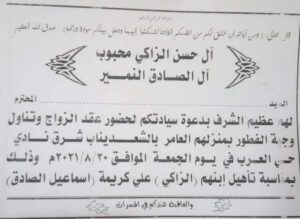 بسم الله الرحمن الرحيم
قال تعالى: (ومن آياته أن خلق لكم من أنفسكم أزواجا لتسكنوا إليها وجعل بينكم مودة ورحمة) صدق الله العظيم
آل حسن الزاكي محبوب
آل الصادق النمير
السيد المحترم
لهم عظيم الشرف بدعوة سيادتكم لحضور عقد الزواج وتناول
وجبة الفطور بمنزلهم العامر بالشعديناب شرق نادي
حي العرب في يوم الجمعة الموافق ٢٠٢١/٨/٢٠م وذلك
بمناسبة تأهيل إبنهم (الزاكي) علي كريمة (اسماعيل الصادق)
والعاقبة عندكم في المسرات